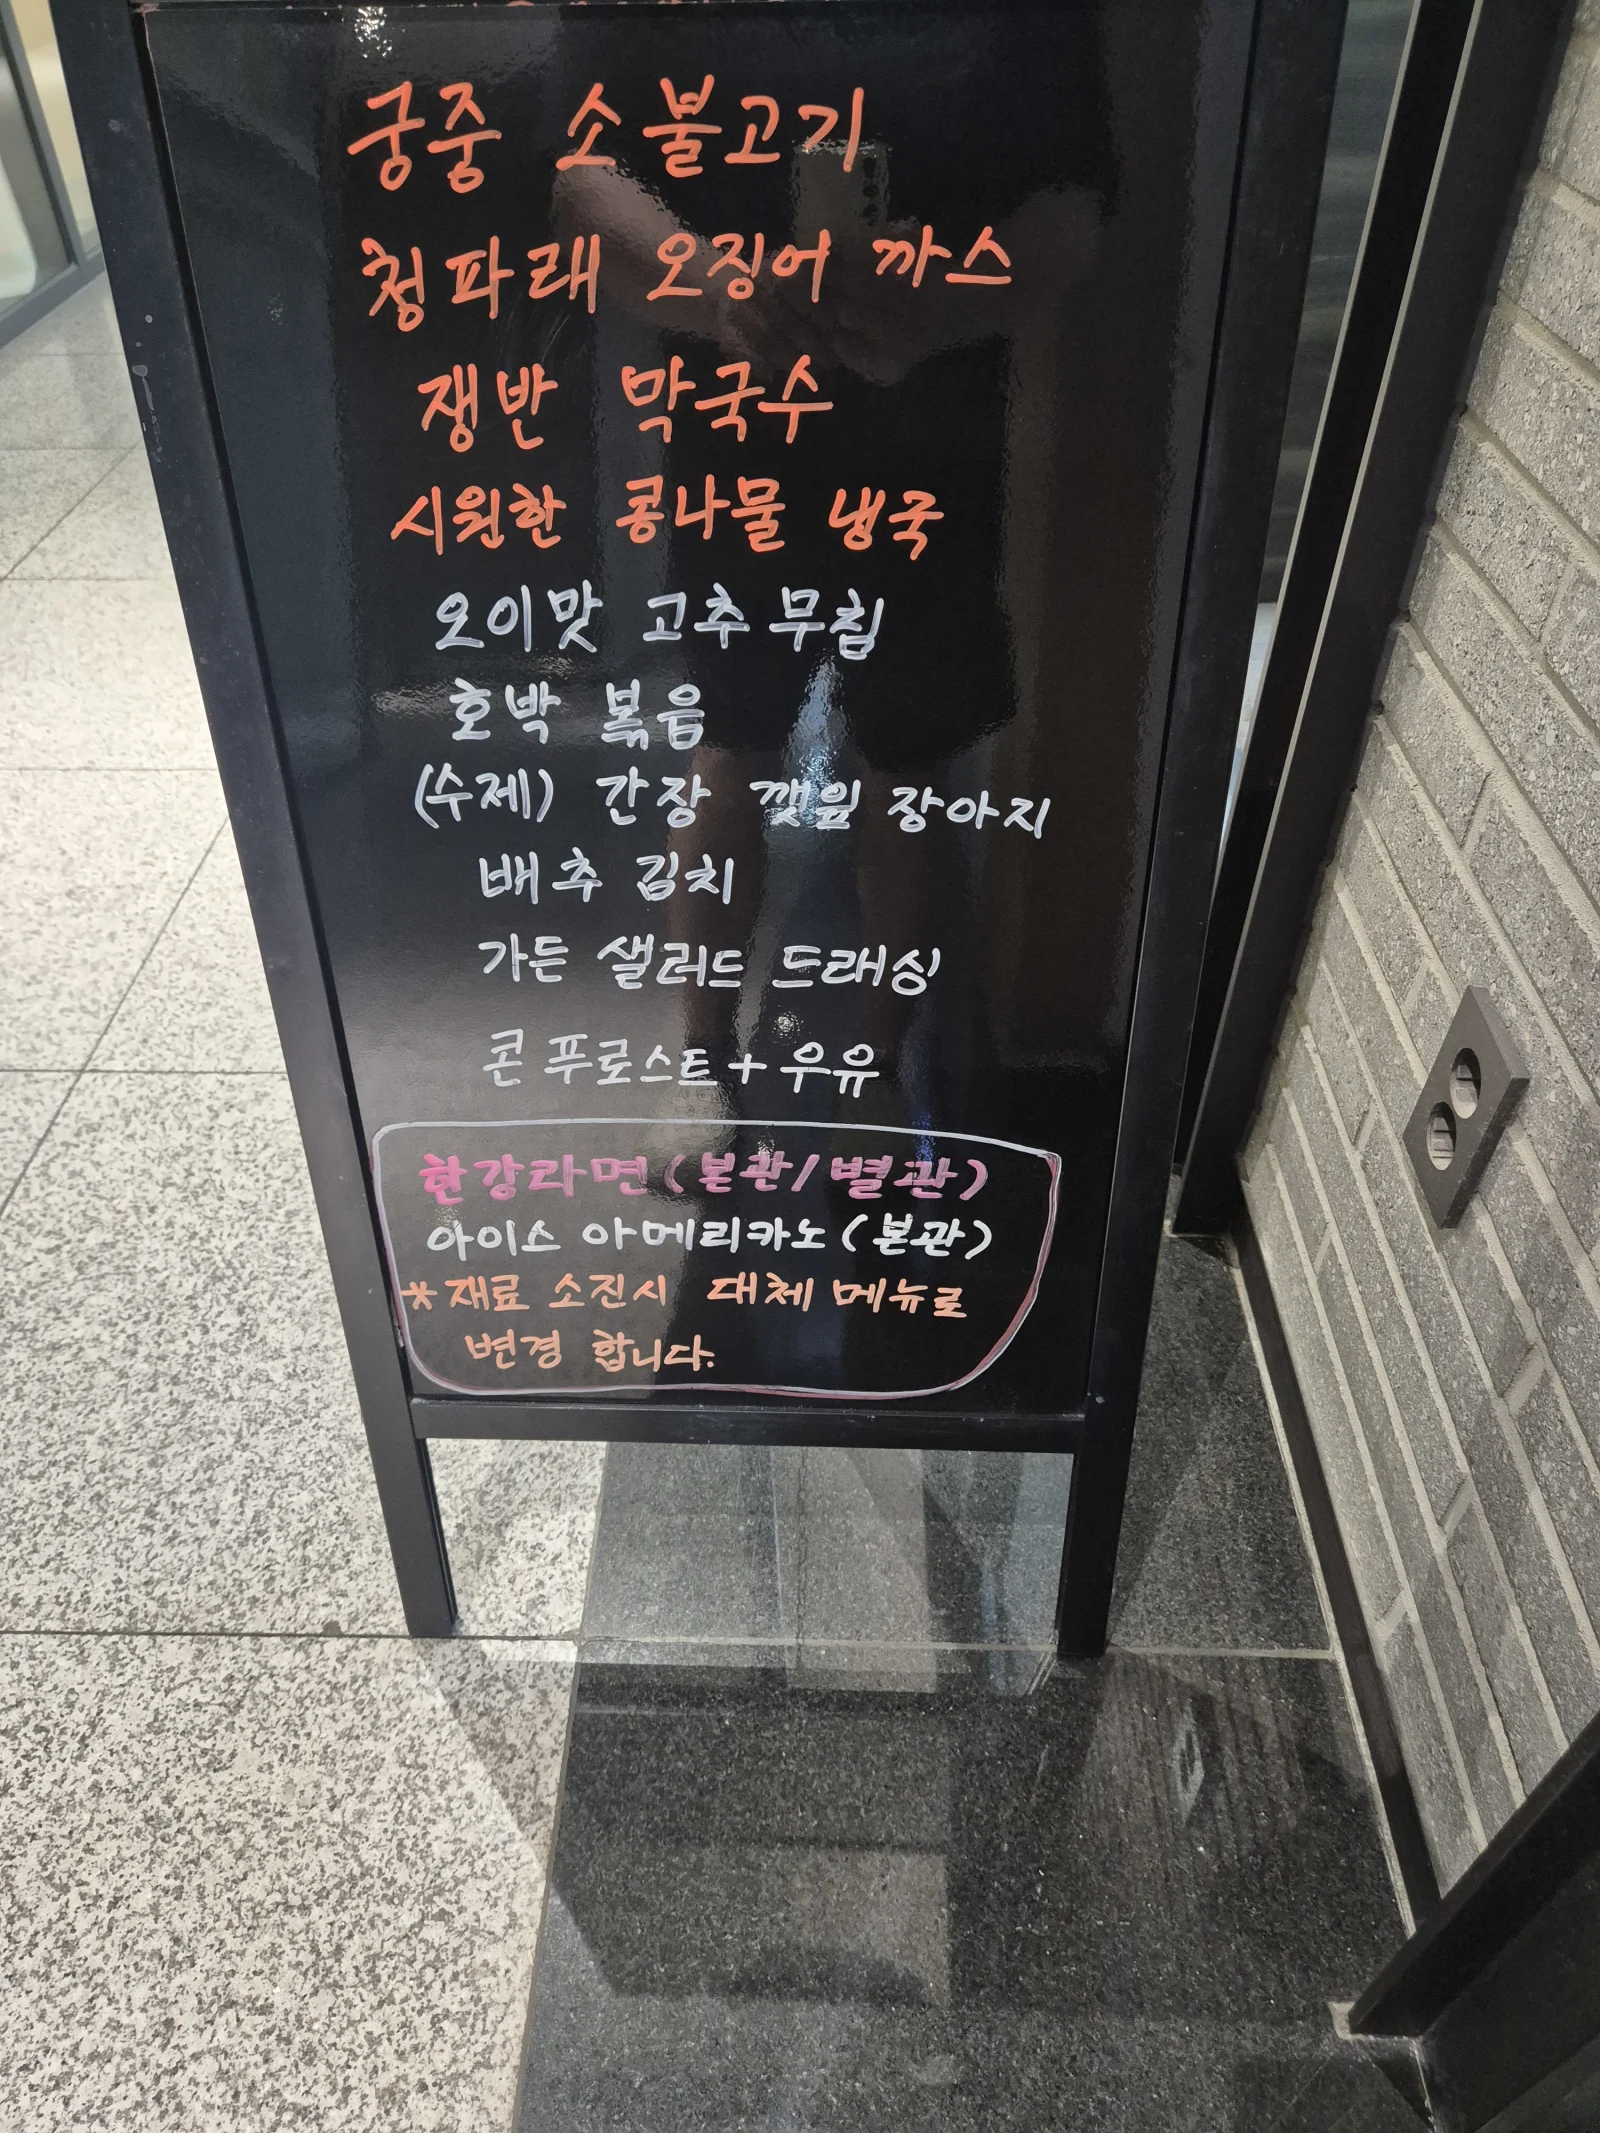 궁중 소불고기
청파래 오징어 까스
쟁반 막국수
시원한 콩나물 냉국
오이맛 고추 무침
호박 볶음
(수제) 간장 깻잎 장아지
배추 김치
가든 샐러드 드래싱
콘 푸로스트 + 우유
한강라면 (본관/별관)
아이스 아메리카노 (본관)
*재료 소진시 대체 메뉴로
변경 합니다.